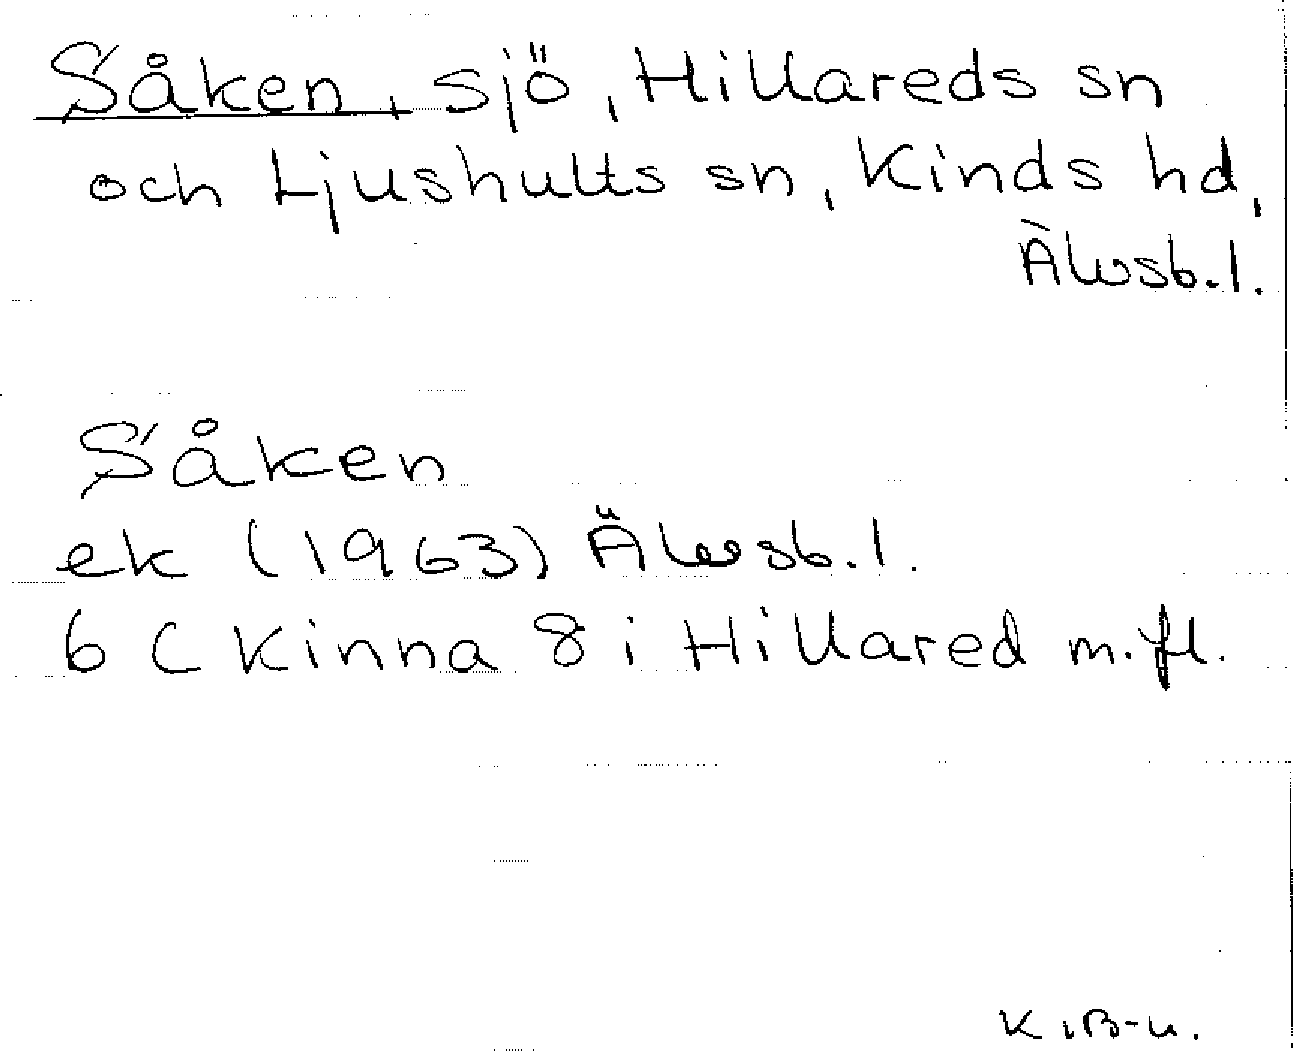 Såken, sjö, Hillareds sn
och Ljushults sn, Kinds hd,
Älvsb.l.
Såken
ek (1963) Älvsb.l.
6 C Kinna 8 i Hillared m.fl.